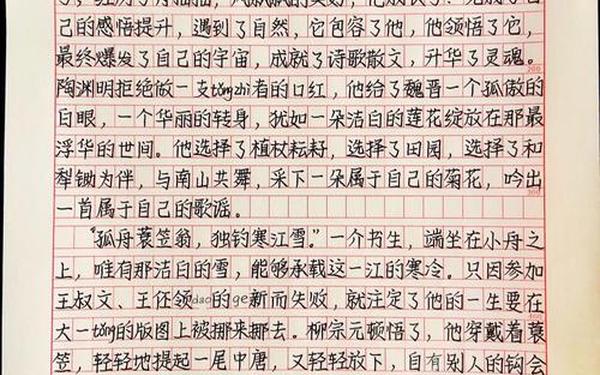 己的感悟提升，遇到了自然，它包容了他，他领悟了它，
最终爆发了自己的宇宙，成就了诗歌散文，升华了灵魂。
200
陶渊明拒绝做一支tǒngzhì者的口红，他给了魏晋一个孤傲的
白眼，一个华丽的转身，犹如一朵洁白的莲花绽放在那最
浮华的世间。他选择了植杖耘耔，选择了田园，选择了和
犁锄为伴，与南山共舞，采下一朵属于自己的菊花，吟出
300
一首属于自己的歌谣。
“孤舟蓑笠翁，独钓寒江雪。”一个书生，端坐在小舟之
上，唯有那洁白的雪，能够承载这一江的寒冷。只因参加
王叔文、王伾领dao的ge新而失败，就注定了他的一生要在
400
大一tǒng的版图上被挪来挪去。柳宗元顿悟了，他穿戴着蓑
笠，轻轻地提起一尾中唐，又轻轻放下，自有别人的钩会